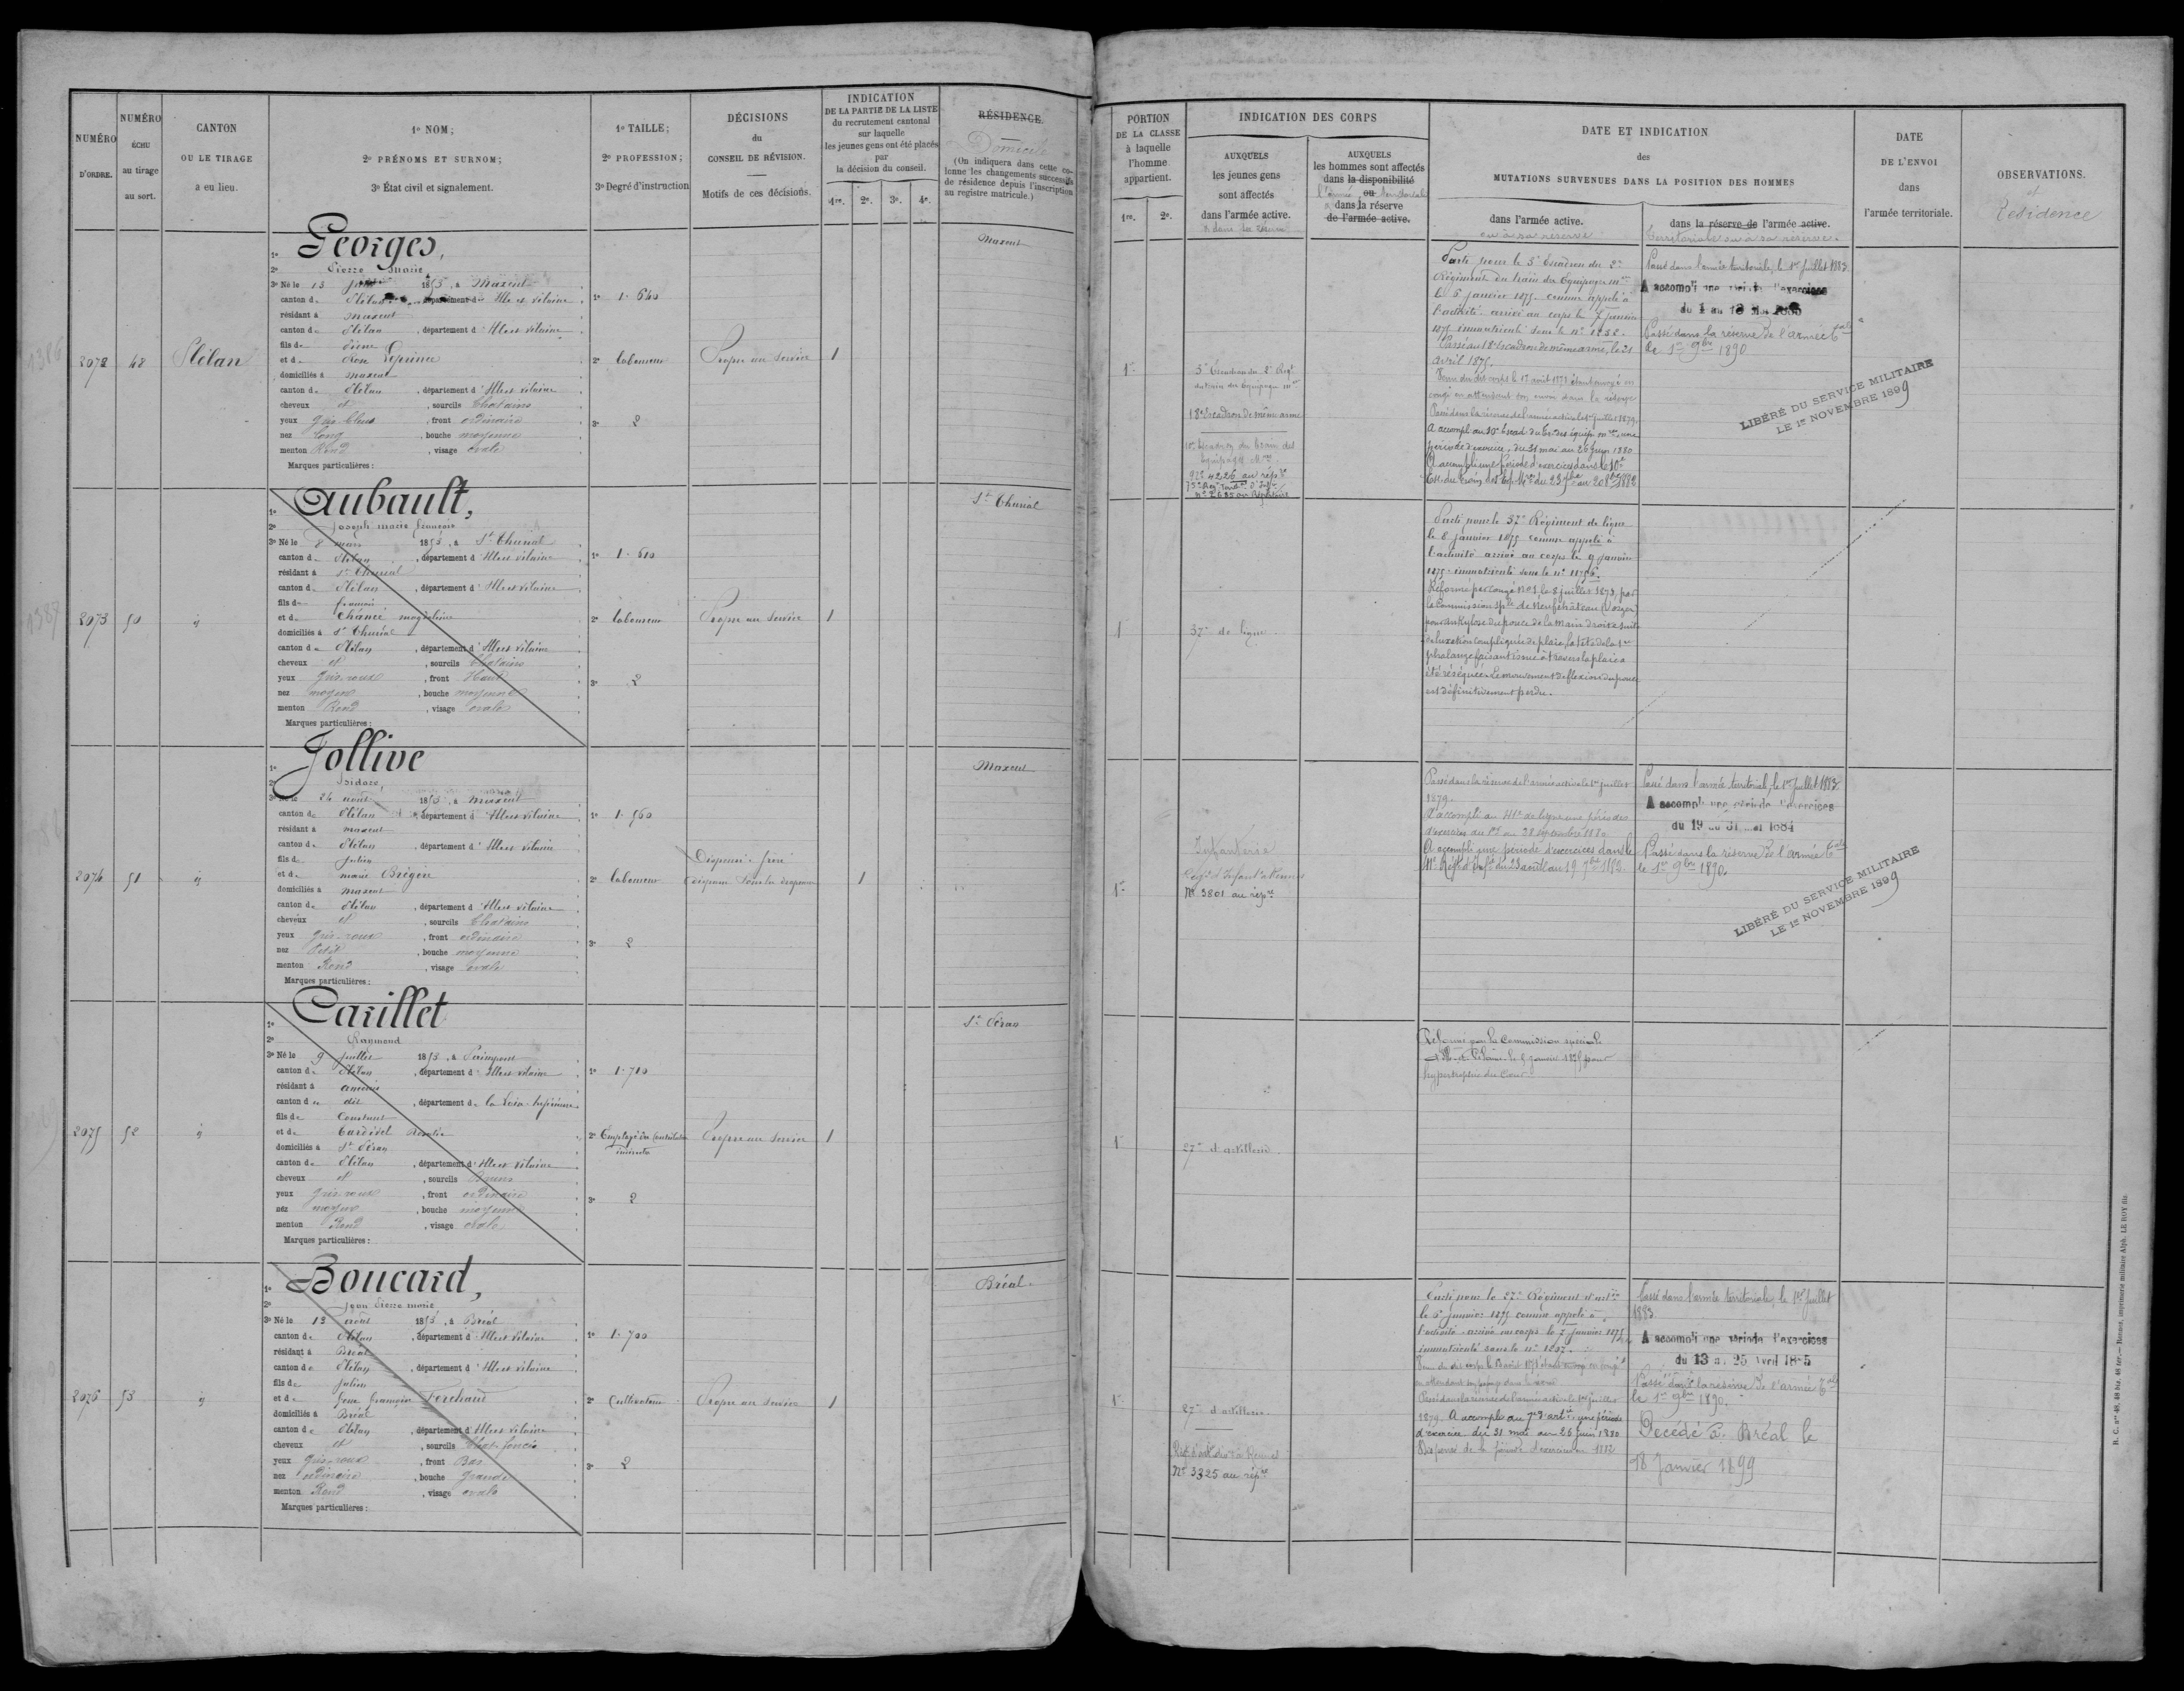 NUMÉRO
D'ORDRE.
NUMÉRO
ÉCHU
au tirage
au sort.
CANTON
OU LE TIRAGE
a eu lieu.
1º NOM;
2º PRÉNOMS ET SURNOM;
3º État civil et signalement.
1º TAILLE;
2º PROFESSION;
3º Degré d'instruction
DÉCISIONS
du
CONSEIL DE RÉVISION.
Motifs de ces décisions.
INDICATION
DE LA PARTIE DE LA LISTE
du recrutement cantonal
sur laquelle
les jeunes gens ont été placés
par
la décision du conseil.
1re. 2e. 3e. 4e.
RÉSIDENCE
Domicile
(On indiquera dans cette co-
lonne les changements successifs
de résidence depuis l'inscription
au registre matricule.)
PORTION
DE LA CLASSE
à laquelle
l'homme
appartient.
1re. 2e.
INDICATION DES CORPS
AUXQUELS
les jeunes gens
sont affectés
dans l'armée active.
& dans sa réserve
AUXQUELS
les hommes sont affectés
dans la disponibilité
l'armée ou territoriale
dans la réserve
de l'armée active.
DATE ET INDICATION
des
MUTATIONS SURVENUES DANS LA POSITION DES HOMMES
dans l'armée active.
ou à sa réserve
dans la réserve de l'armée active.
territoriale ou à sa réserve.
DATE
DE L'ENVOI
dans
l'armée territoriale.
OBSERVATIONS.
et
Résidence
1386
2072
48
Plélan
Georges,
1º
2º Pierre Marie
3º Né le 13 1853, à Maxent
canton de Plélan, département d'Ille et Vilaine
résidant à Maxent
canton de Plélan, département d'Ille et Vilaine
fils de Pierre
et de Rose Leprince
domiciliés à Maxent
canton de Plélan, département d'Ille et Vilaine
cheveux et, sourcils Chatains
yeux gris-bleus, front ordinaire
nez long, bouche moyenne
menton Rond, visage ovale
Marques particulières:
1º 1.640
2º laboureur
3º 2
Propre au service
1
Maxent
1re
3e Escadron du 2e Régt
du train des Equipages mres
18e Escadron de même arme
10e Escadron du train des
Equipages Mres
Nº 4226 au rép.re
75e Régt Territ.al d'Inf.ie
Nº 2635 au Répertoire
Parti pour le 3e Escadron du 2e
Régiment du train des Equipages mres
le 6 janvier 1875 comme appelé à
l'activité arrivé au corps le 7 janvier
1875 immatriculé sous le nº 1232.
Passé au 18e Escadron de même arme, le 21
avril 1875.
Venu du dit corps le 17 août 1878 étant envoyé en
congé en attendant son envoi dans la réserve
Passé dans la réserve de l'armée active le 1er juillet 1879.
A accompli au 10e Escad. du tr. des équip. mres une
période d'exercices, du 31 mai au 26 juin 1880
A accompli une période d'exercices dans le 10e
Passé dans l'armée territoriale, le 1er juillet 1883.
A accompli une période d'exercices
Passé dans la réserve de l'armée t.ale
le 1er 9bre 1890
LIBÉRÉ DU SERVICE MILITAIRE
LE 1er NOVEMBRE 1899
1387
2073
50
id
Aubault,
1º
2º Joseph Marie François
3º Né le 8 mars 1853, à St Thurial
canton de Plélan, département d'Ille et Vilaine
résidant à St Thurial
canton de Plélan, département d'Ille et Vilaine
fils de françois
et de Chancé magdeleine
domiciliés à St Thurial
canton de Plélan, département d'Ille et Vilaine
cheveux et, sourcils Chatains
yeux gris-roux, front Haut
nez moyen, bouche moyenne
menton Rond, visage ovale
Marques particulières:
1º 1.610
2º laboureur
3º 2
Propre au service
1
St Thurial
1
37e de ligne
Parti pour le 37e Régiment de ligne
le 8 janvier 1875 comme appelé à
l'activité arrivé au corps le 9 janvier
1875 immatriculé sous le nº 11756.
Réformé par congé Nº 1, le 8 juillet 1873, par
la Commission sp.le de Neufchâteau (Vosges)
pour ankylose du pouce de la main droite suite
de luxation compliquée de plaie, la tête de la 1re
phalange faisant issue à travers la plaie a
été réséquée. Le mouvement de flexion du pouce
est définitivement perdu.
2074
51
id
Jollive
1º
2º Isidore,
3º Né le 24 août 1853, à Maxent
canton de Plélan, département d'Ille et Vilaine
résidant à Maxent
canton de Plélan, département d'Ille et Vilaine
fils de Julien
et de Marie Brégère
domiciliés à Maxent
canton de Plélan, département d'Ille et Vilaine
cheveux et, sourcils Chatains
yeux gris-roux, front ordinaire
nez Petit, bouche moyenne
menton Rond, visage ovale
Marques particulières:
1º 1.560
2º laboureur
3º 2
Dispensé: frère
1
Maxent
1re
Infanterie
Nº 3801 au rép.re
Passé dans la réserve de l'armée active le 1er juillet
1879.
A accompli au 41e de ligne une période
A accompli une période d'exercices dans le
Passé dans l'armée territoriale, le 1er juillet 1883
A accompli une période d'exercices
du 19 au 31 mai 1884
Passé dans la réserve de l'armée t.ale
le 1er 9bre 1890.
LIBÉRÉ DU SERVICE MILITAIRE
LE 1er NOVEMBRE 1899
2075
52
id
Carillet
1º
2º Raymond
3º Né le 9 juillet 1853, à Paimpont
canton de Plélan, département d'Ille et Vilaine
résidant à Ancenis
canton de dit, département de la Loire-Inférieure
fils de Constant
et de Cardidel Rosalie
domiciliés à St Péran
canton de Plélan, département d'Ille et Vilaine
cheveux et, sourcils Bruns
yeux gris-roux, front ordinaire
nez moyen, bouche moyenne
menton Rond, visage ovale
Marques particulières:
1º 1.710
2º Employé des Contributions
indirectes
3º 2
Propre au service
1
St Péran
1re
27e d'artillerie
Réformé par la Commission spéciale
d'Ille-et-Vilaine le 5 janvier 1875 pour
hypertrophie du Cœur.
2076
53
id
Boucard,
1º
2º Jean Pierre Marie
3º Né le 13 août 1853, à Bréal
canton de Plélan, département d'Ille et Vilaine
résidant à Bréal
canton de Plélan, département d'Ille et Vilaine
fils de Julien
et de Françoise Perchaud
domiciliés à Bréal
canton de Plélan, département d'Ille et Vilaine
cheveux et, sourcils Chat. foncés
yeux gris-roux, front Bas
nez ordinaire, bouche grande
menton Rond, visage ovale
Marques particulières:
1º 1.700
2º Cultivateur
3º 2
Propre au service
1
Bréal
1re
27e d'artillerie
Nº 3325 au rép.re
Parti pour le 27e Régiment d'art.ie
le 6 janvier 1875 comme appelé à
l'activité arrivé au corps le 7 janvier 1875
immatriculé sous le nº 1207.
Passé dans la réserve de l'armée active le 1er juillet
1879. A accompli au 7e d'art.ie une période
d'exercices du 31 mai au 26 juin 1880
Passé dans l'armée territoriale, le 1er juillet
1883
A accompli une période d'exercices
du 13 au 25 avril 1885
Passé dans la réserve de l'armée t.ale
le 1er 9bre 1890.
Décédé à Bréal le
18 Janvier 1899
R. C. nos 48, 48 bis, 48 ter. — Rennes, imprimerie militaire Alph. LE ROY fils.